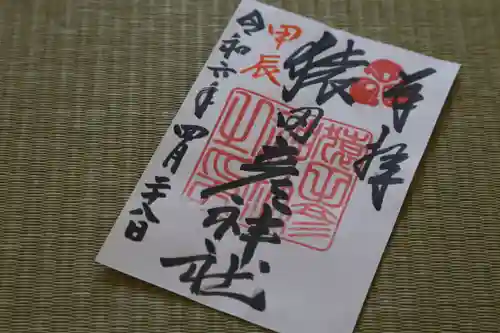 奉拝
猿田彦神社
甲辰
令和六年四月二十八日